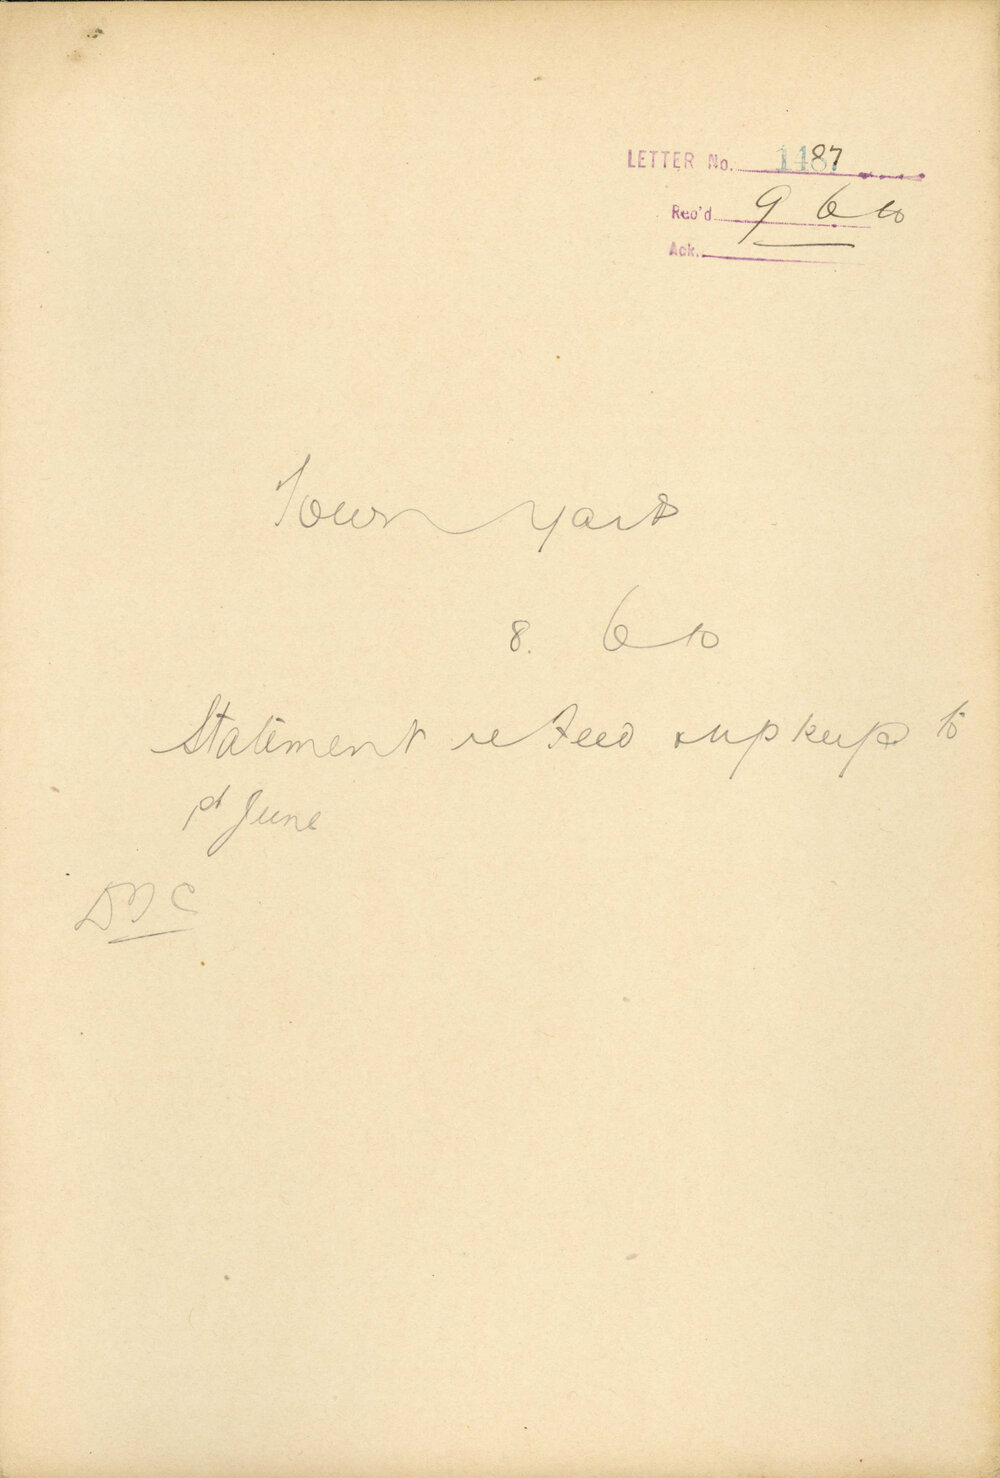 LETTER No. 1487
Rec'd 9 6 10
Ack.
Town Yard
8. 6 10
Statement re Feed & upkeep to
1st June